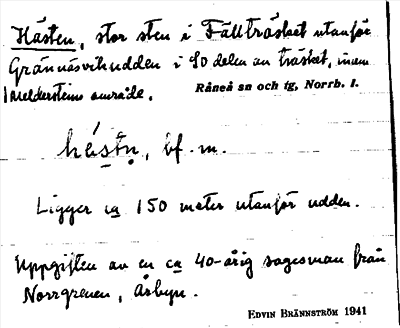 Hästen, stor sten i Fällträsket utanför
Grännäsvikudden i SO delen av träsket, inom
Meldersteins område.
Råneå sn och tg, Norrb. l.
hästn, bf. m.
Ligger ca 150 meter utanför udden.
Uppgiften av en ca 40-årig sagesman från
Norrgrenen, Åsbyn.
EDVIN BRÄNNSTRÖM 1941